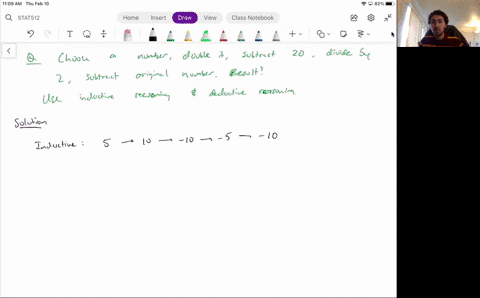 11:09 AM Thu Feb 10
82%
STAT512
Home Insert Draw View Class Notebook
Q. Choose a number, double it, subtract 20, divide by
2, subtract original number. Result?
Use inductive reasoning & deductive reasoning
Solution
Inductive: 5 → 10 → -10 → -5 → -10